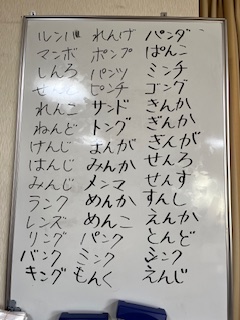 ルンバ れんげ パンダ
マンボ ポンプ ぱんこ
しんろ パンツ ミンチ
ピンチ ゴング
れんこ サンド きんか
ねんど トング ぎんか
けんじ まんが ぎんが
はんじ みんか せんろ
みんじ メンマ せんす
ランク めんか すんし
レンズ めんこ えんか
リング パンク とんど
バンク ミンク シンク
キング もんく えんじ